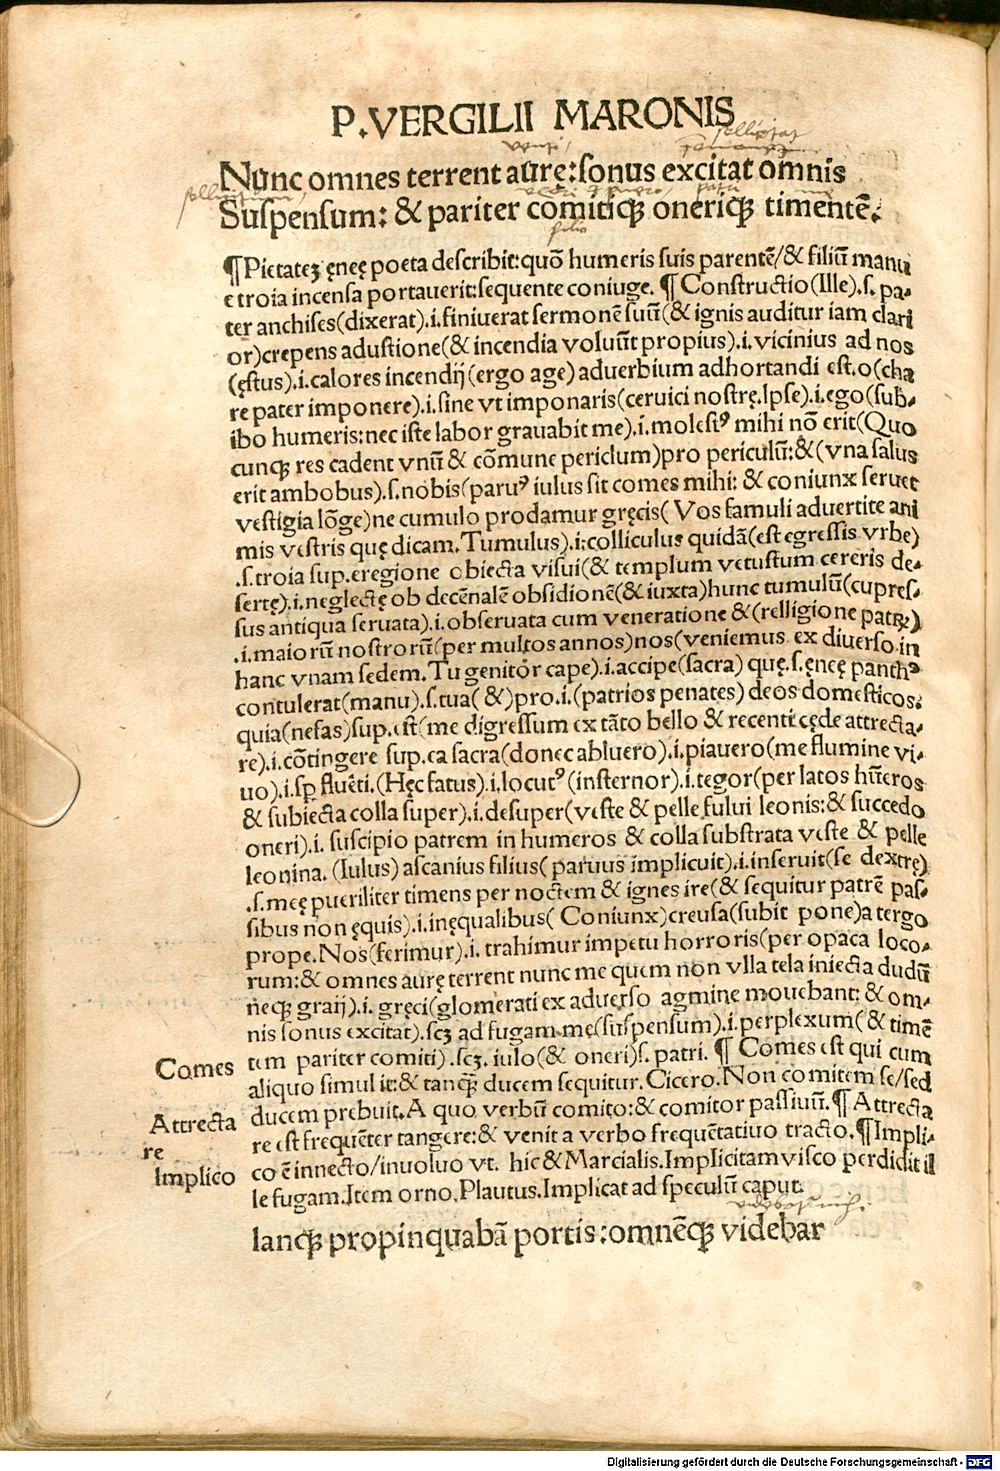 P. VERGILII MARONIS
Nunc omnes terrent aure: sonus excitat omnis
Suspensum: & pariter comitiqꝫ oneriqꝫ timentē.
filio
¶Pietateꝫ ęneę poeta describit: quō humeris suis parentē/& filiū manu
e troia incensa portauerit: sequente coniuge. ¶ Constructio (Ille).s. pa-
ter anchises(dixerat).i.finiuerat sermonē suū(& ignis auditur iam clari
or)crepens adustione(& incendia voluūt propius).i.vicinius ad nos
(ęstus).i.calores incendij(ergo age)aduerbium adhortandi est.o(cha
re pater imponere).i.sine vt imponaris(ceruici nostrę.Ipse).i.ego(sub-
ibo humeris: nec iste labor grauabit me).i.molestꝰ mihi nō erit(Quo
cunqꝫ res cadent vnū & cōmune periclum)pro periculū:&(vna salus
erit ambobus).s.nobis(paruꝰ iulus sit comes mihi: & coniunx seruet
vestigia lōge)ne cumulo prodamur gręcis( Vos famuli aduertite ani
mis vestris quę dicam. Tumulus).i.colliculus quidā(est egressis vrbe)
.s.troia sup.eregione obiecta visui(& templum vetustum cereris de-
sertę).i.neglectę ob decēnalē obsidionē(& iuxta)hunc tumulū(cupres-
sus antiqua seruata).i.obseruata cum veneratione &(relligione patrꝝ)
.i.maiorū nostrorū(per multos annos)nos(veniemus ex diuerso in
hanc vnam sedem. Tu genitor cape).i.accipe(sacra) quę.s.ęneę panthꝰ
contulerat(manu).s.tua( &)pro.i.(patrios penates) deos domesticos:
quia(nefas)sup.est(me digressum ex tāto bello & recenti cęde attrecta-
re).i.cōtingere sup.ea sacra(donec abluero).i.piauero(me flumine vi-
uo).i.sp fluēti.(Hęc fatus).i.locutꝰ(insternor).i.tegor(per latos hūeros
& subiecta colla super).i.desuper(veste & pelle fului leonis: & succedo
oneri).i. suscipio patrem in humeros & colla substrata veste & pelle
leonina. (Iulus) ascanius filius( paruus implicuit).i.inseruit(se dextrę)
.s.meę pueriliter timens per noctem & ignes ire(& sequitur patrē pas-
sibus non ęquis).i.inęqualibus( Coniunx)creusa(subit pone)a tergo
prope. Nos(ferimur).i. trahimur impetu horroris(per opaca loco-
rum: & omnes aurę terrent nunc me quem non vlla tela iniecta dudū
neqꝫ graij).i. gręci(glomerati ex aduerso agmine mouebant: & om-
nis sonus excitat).scꝫ ad fugam me(suspensum).i.perplexum( & timē
tem pariter comiti).scꝫ. iulo(& oneri)s. patri. ¶ Comes est qui cum
Comes
aliquo simul it: & tanqꝫ ducem sequitur. Cicero. Non comitem se/sed
ducem prebuit. A quo verbū comito: & comitor passiuū.¶ Attrecta
Attrecta
re est frequēter tangere: & venit a verbo frequētatiuo tracto.¶Impli-
re
co ē innecto/inuoluo vt. hic & Marcialis. Implicitam visco perdidit il
Implico
le fugam. Item orno. Plautus. Implicat ad speculū caput.
Iamqꝫ propinquabā portis: omnēqꝫ videbar
Digitalisierung gefördert durch die Deutsche Forschungsgemeinschaft - DFG